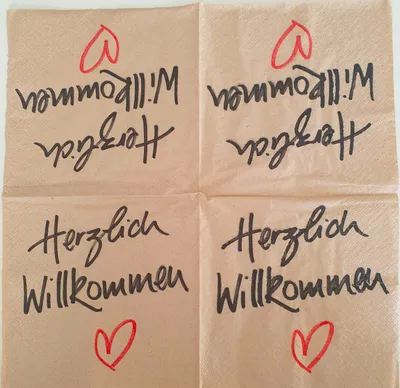 Willkommen Willkommen
Herzlich Herzlich
Herzlich Herzlich
Willkommen Willkommen